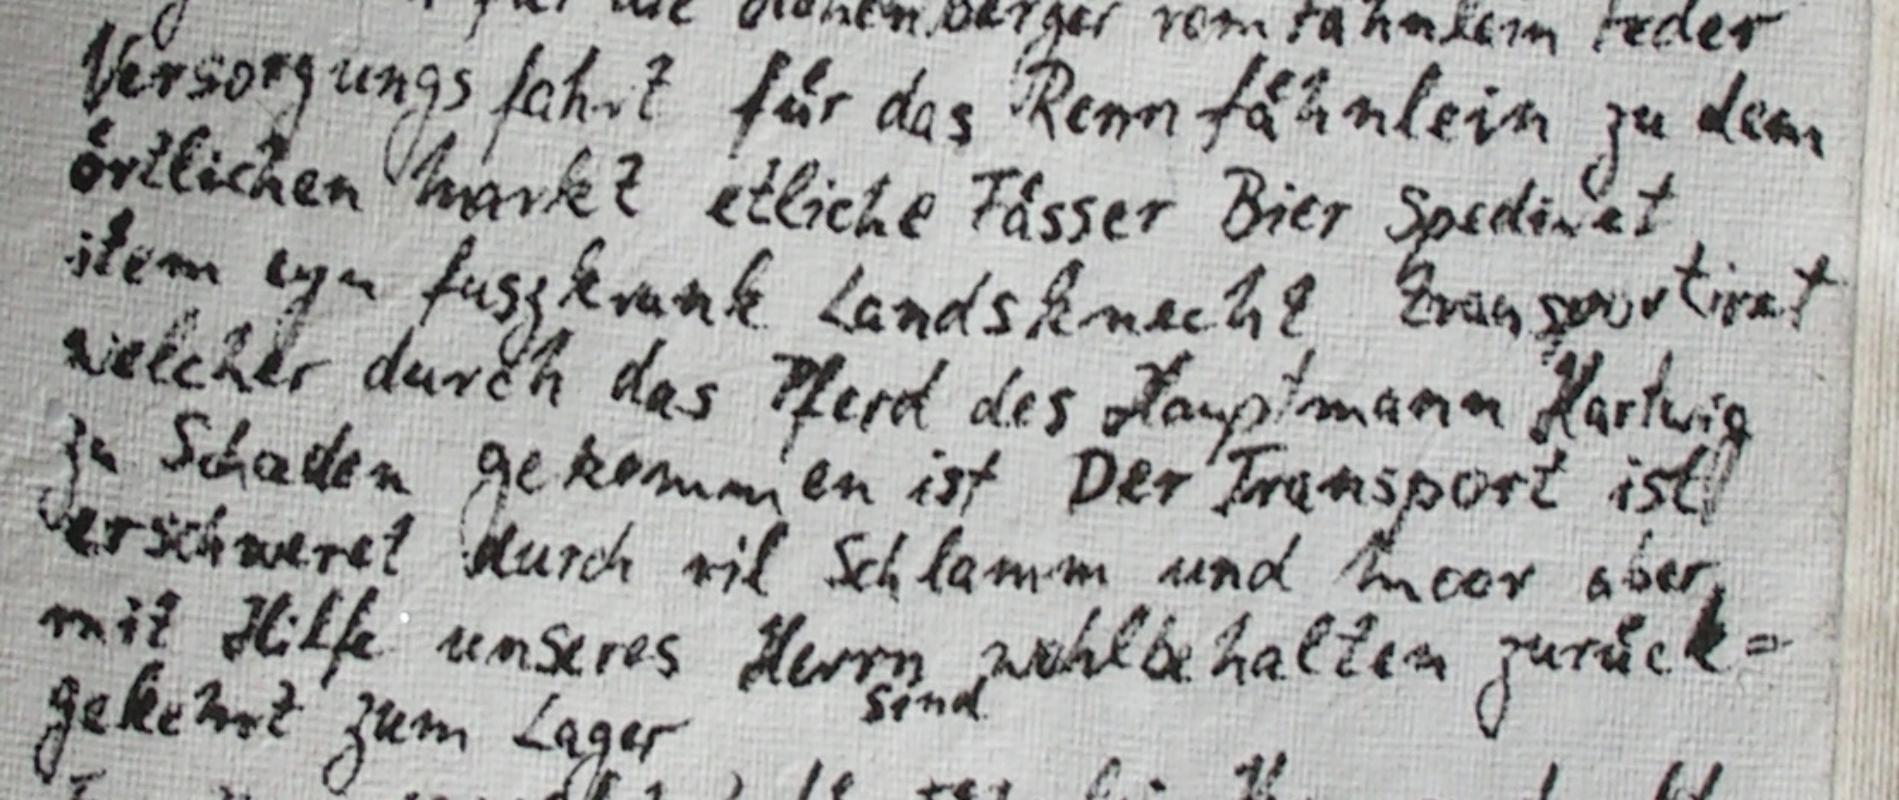 für die Hohenberger vom Fähnlein Feder
Versorgungsfahrt für das Rennfähnlein zu dem
örtlichen Markt etliche Fässer Bier Spediret
item eyn fuszkrank Landsknecht transportiret
welcher durch das Pferd des Hauptmann Hartwig
zu Schaden gekommen ist Der Transport ist
verschweret durch vil Schlamm und Moor aber
mit Hilfe unseres Herrn wohlbehalten zurück=
gekehrt zum Lager sind